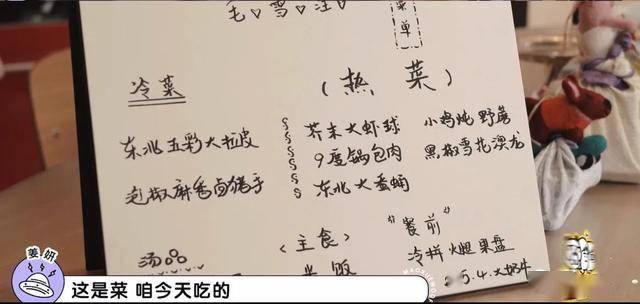 毛♡雪♡汪♡
菜单
冷菜
(热菜)
东北五彩大拉皮
芥末大虾球
小鸡炖野蘑
泡椒麻香卤猪手
9度锅包肉
黑椒雪花澳龙
东北大蚕蛹
汤
<主食>
"餐前"
米饭
冷拼火腿果盘
姜妍
这是菜 咱今天吃的